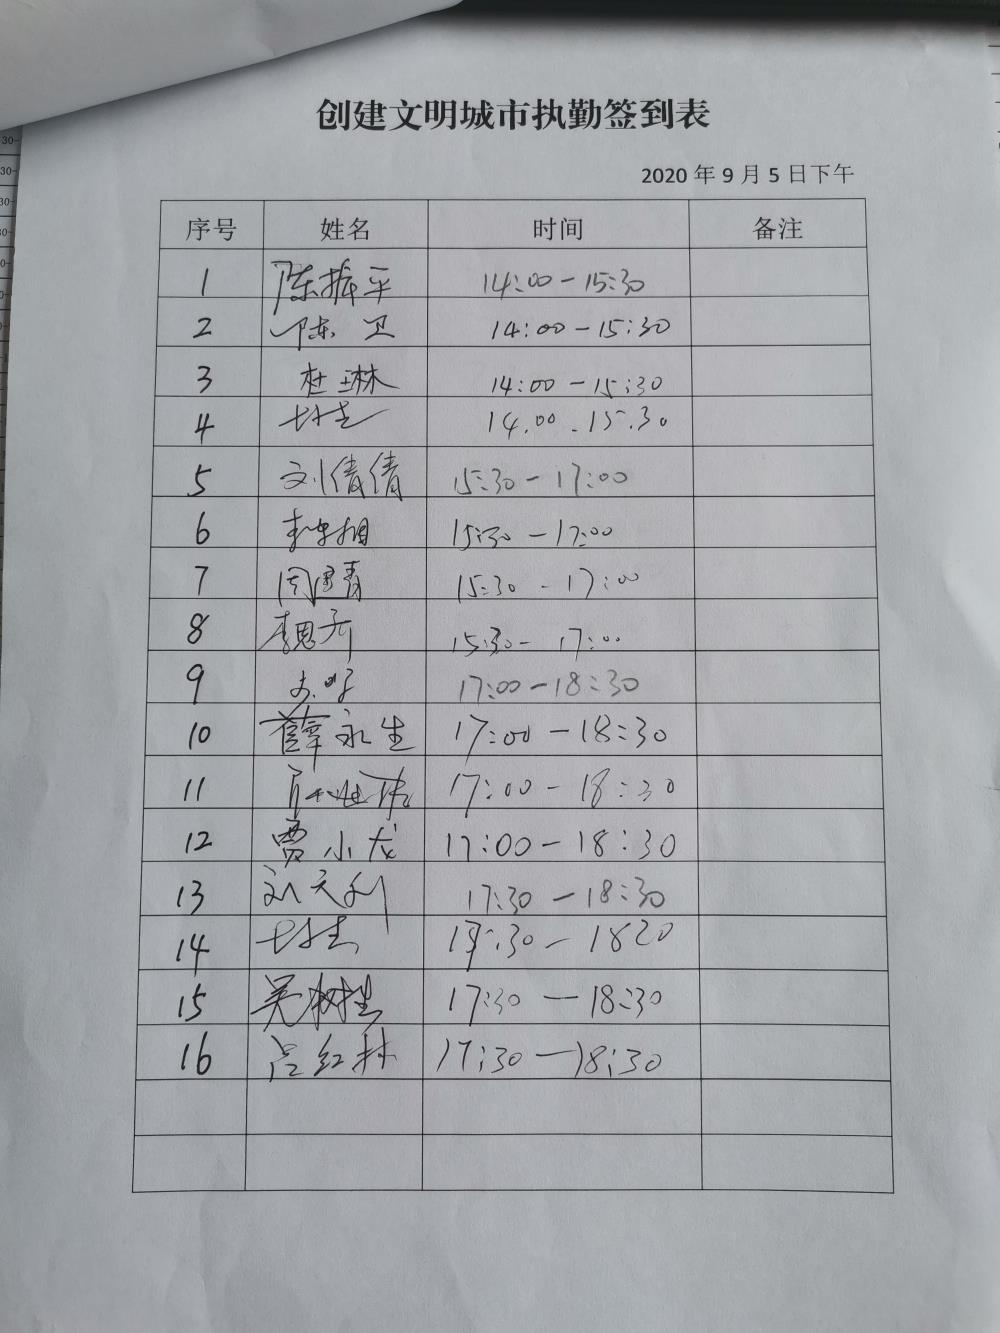 创建文明城市执勤签到表
2020年9月5日下午
序号 姓名 时间 备注
1 陈振平 14:00-15:30
2 陈卫 14:00-15:30
3 杜琳 14:00-15:30
4 14.00.15.30
5 刘倩倩 15:30-17:00
6 15:30-17:00
7 15:30-17:00
8 15:30-17:00
9 17:00-18:30
10 薛永生 17:00-18:30
11 17:00-18:30
12 贾小龙 17:00-18:30
13 刘天利 17:30-18:30
14
15 吴树生 17:30-18:30
16 吕红林 17:30-18:30